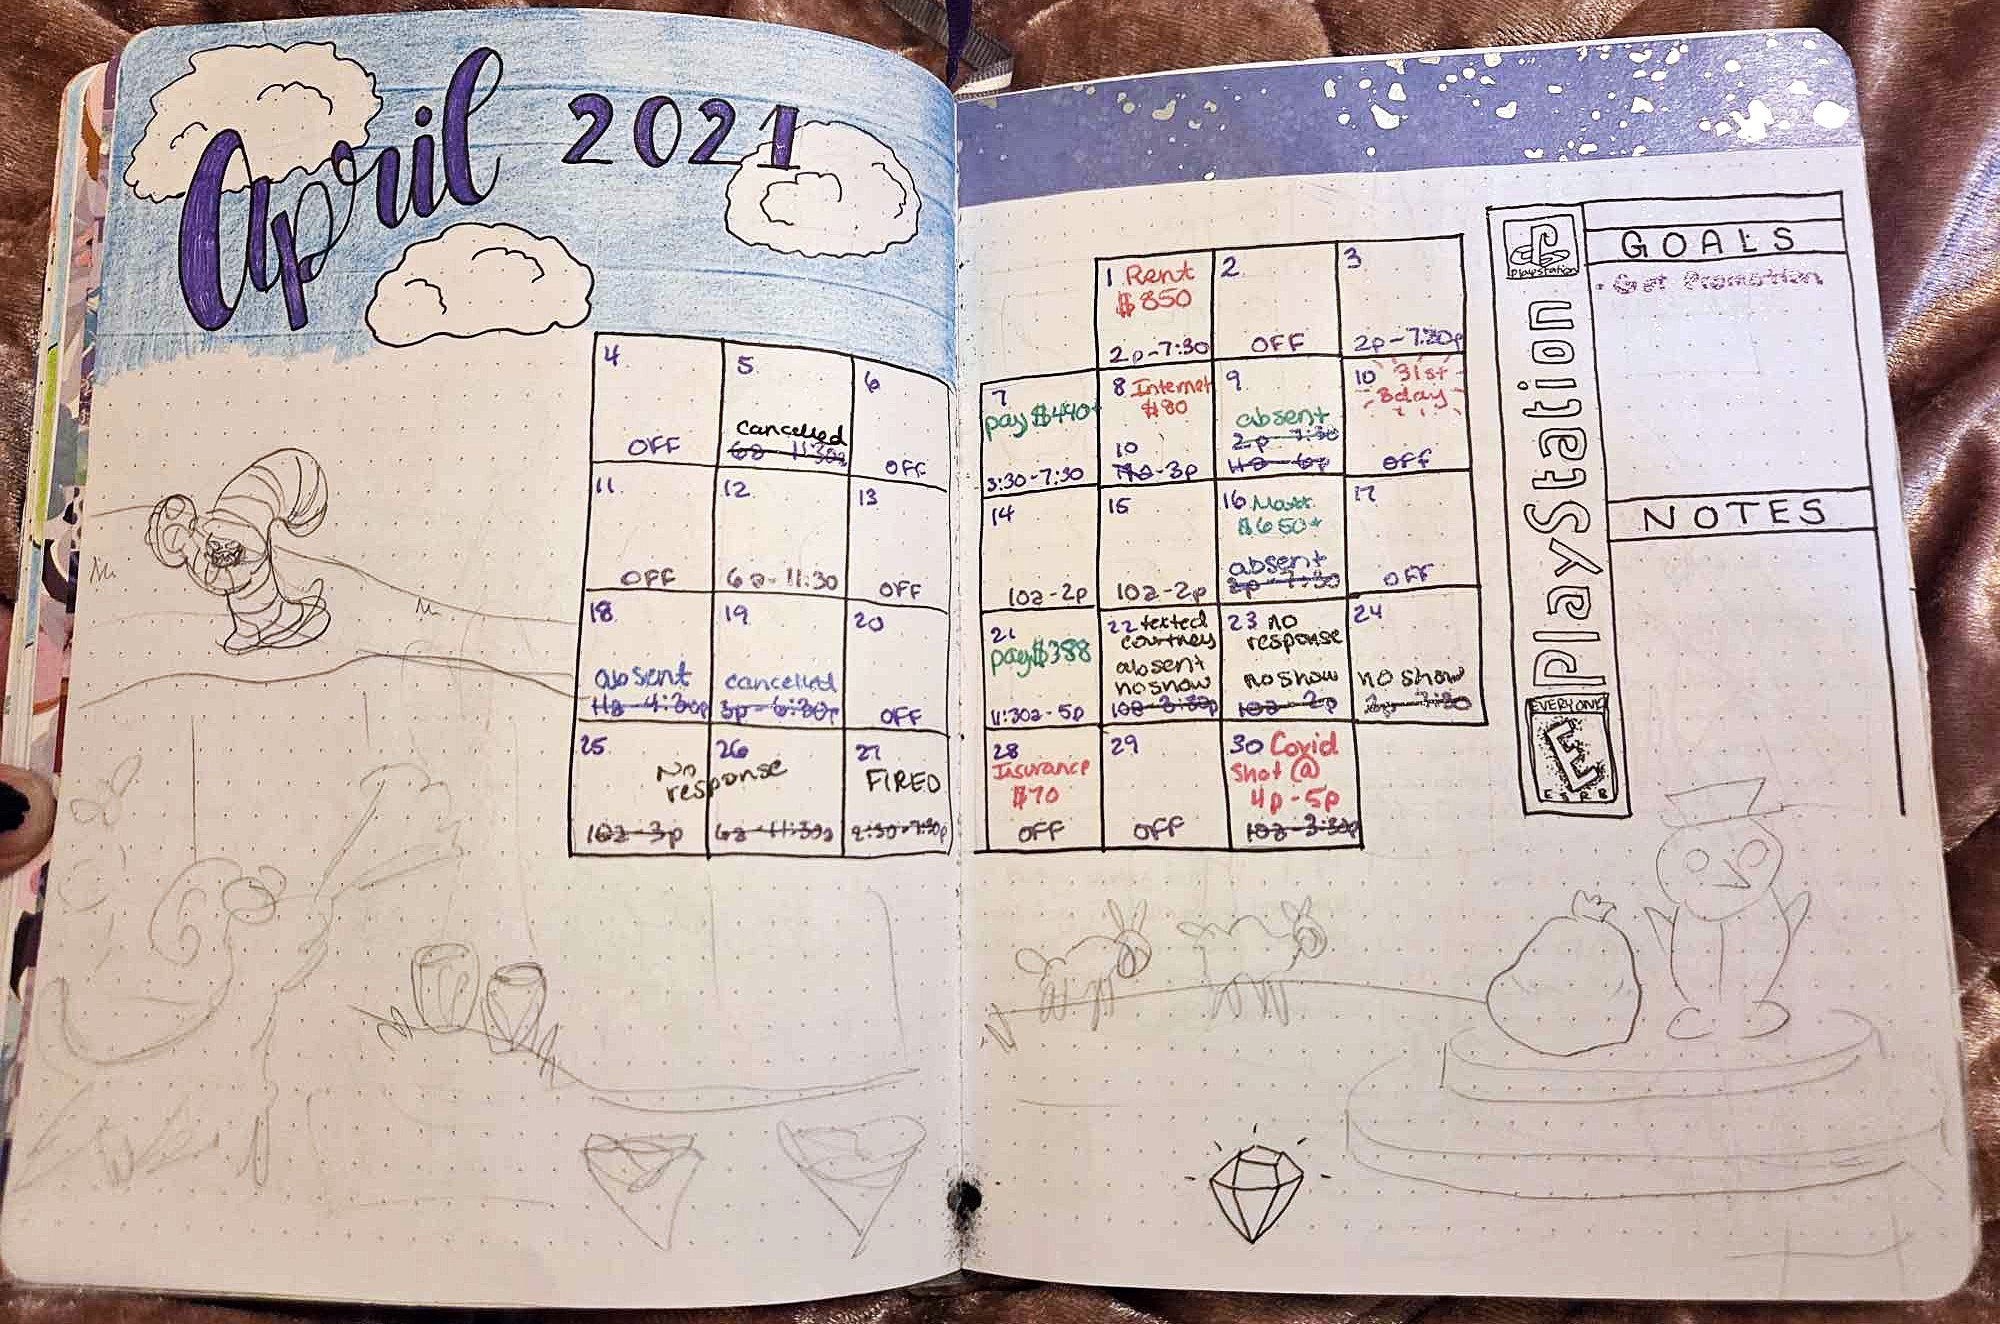 April 2021
4
OFF
5
cancelled
6a-11:30a
6
OFF
11
OFF
12
6a-11:30
13
OFF
18
absent
11a-4:30p
19
cancelled
3p-6:30p
20
OFF
25
10a-3p
26
No
response
6a-11:30a
27
FIRED
2:30-7:30p
1 Rent
$850
2p-7:30
2
OFF
3
2p-7:30p
7
pay $440+
3:30-7:30
8 Internet
$80
10
11a-3p
9
absent
2p-7:30
11a-6p
10 31st
Bday
OFF
14
10a-2p
15
10a-2p
16
$650+
absent
2p-7:30
17
OFF
21
pay $388
11:30a-5p
22 texted
courtney
absent
no show
10a-3:30p
23 no
response
no show
10a-2p
24
no show
2p-7:30
28
Insurance
$70
OFF
29
OFF
30 Covid
Shot @
4p-5p
10a-3:30p
PlayStation
PlayStation
EVERYONE
E
ESRB
GOALS
· Get Promotion
NOTES